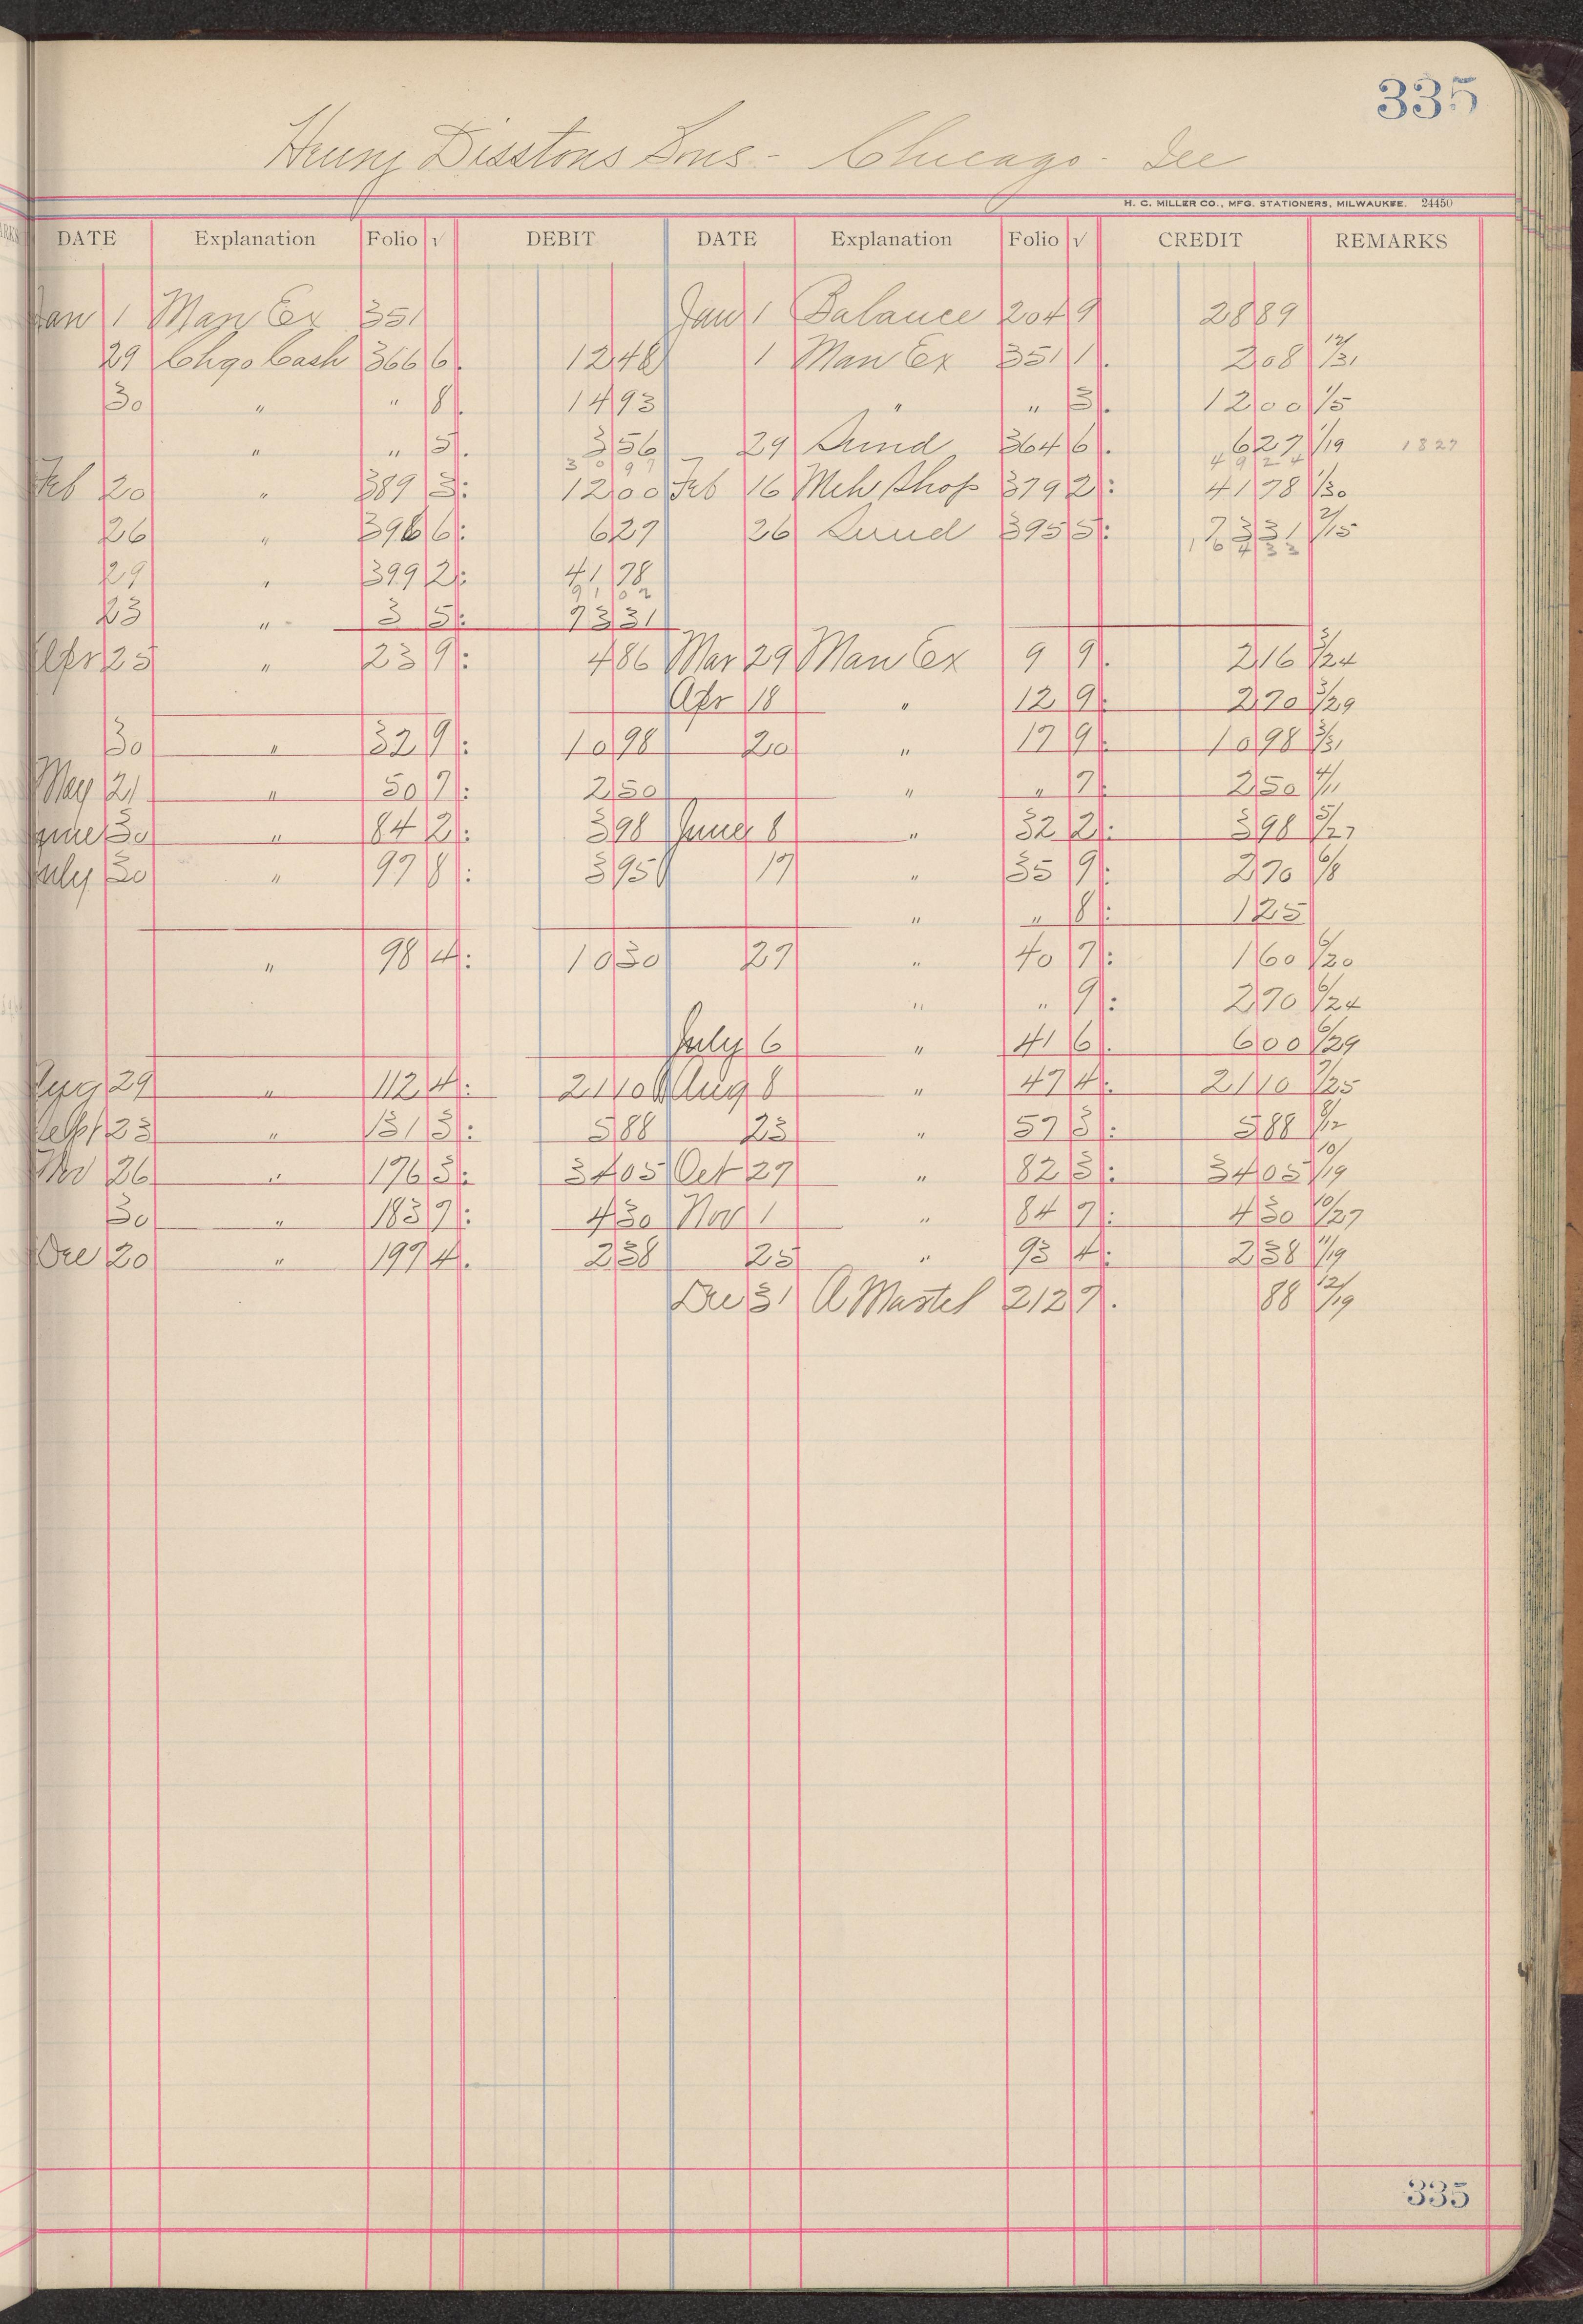 335
Henry Disstons Sons - Chicago - Ill
H. C. MILLER CO., MFG. STATIONERS, MILWAUKEE. 24450
DATE Explanation Folio √ DEBIT DATE Explanation Folio √ CREDIT REMARKS
Jan 1 Man Ex 351 Jan 1 Balance 204 9 2889
29 Chgo Cash 366 6 1248 1 Man Ex 351 1 208 12/31
30 " " 8 1493 " " 3 1200 1/5
" " 5 356 29 Sund 364 6 627 1/19 1827
3097 4924
Feb 20 " 389 3 1200 Feb 16 Mch Shop 379 2 4178 1/30
26 " 396 6 627 26 Sund 395 5 7331 2/15
16433
29 " 399 2 4178
9102
23 " 3 5 7331
Apr 25 " 23 9 486 Mar 29 Man Ex 9 9 216 3/24
Apr 18 " 12 9 270 3/29
30 " 32 9 1098 20 " 17 9 1098 3/31
May 21 " 50 7 250 " " 7 250 4/11
June 30 " 84 2 398 June 8 " 32 2 398 5/27
July 30 " 97 8 395 17 " 35 9 270 6/8
" " 8 125
" 98 4 1030 27 " 40 7 160 6/20
" " 9 270 6/24
July 6 " 41 6 600 6/29
Aug 29 " 112 4 2110 Aug 8 " 47 4 2110 7/25
Sept 23 " 131 3 588 23 " 57 3 588 8/12
Nov 26 " 176 3 3405 Oct 27 " 82 3 3405 10/19
30 " 183 7 430 Nov 1 " 84 7 430 10/27
Dec 20 " 197 4 238 25 " 93 4 238 11/19
Dec 31 A Mastel 212 7 88 12/19
335